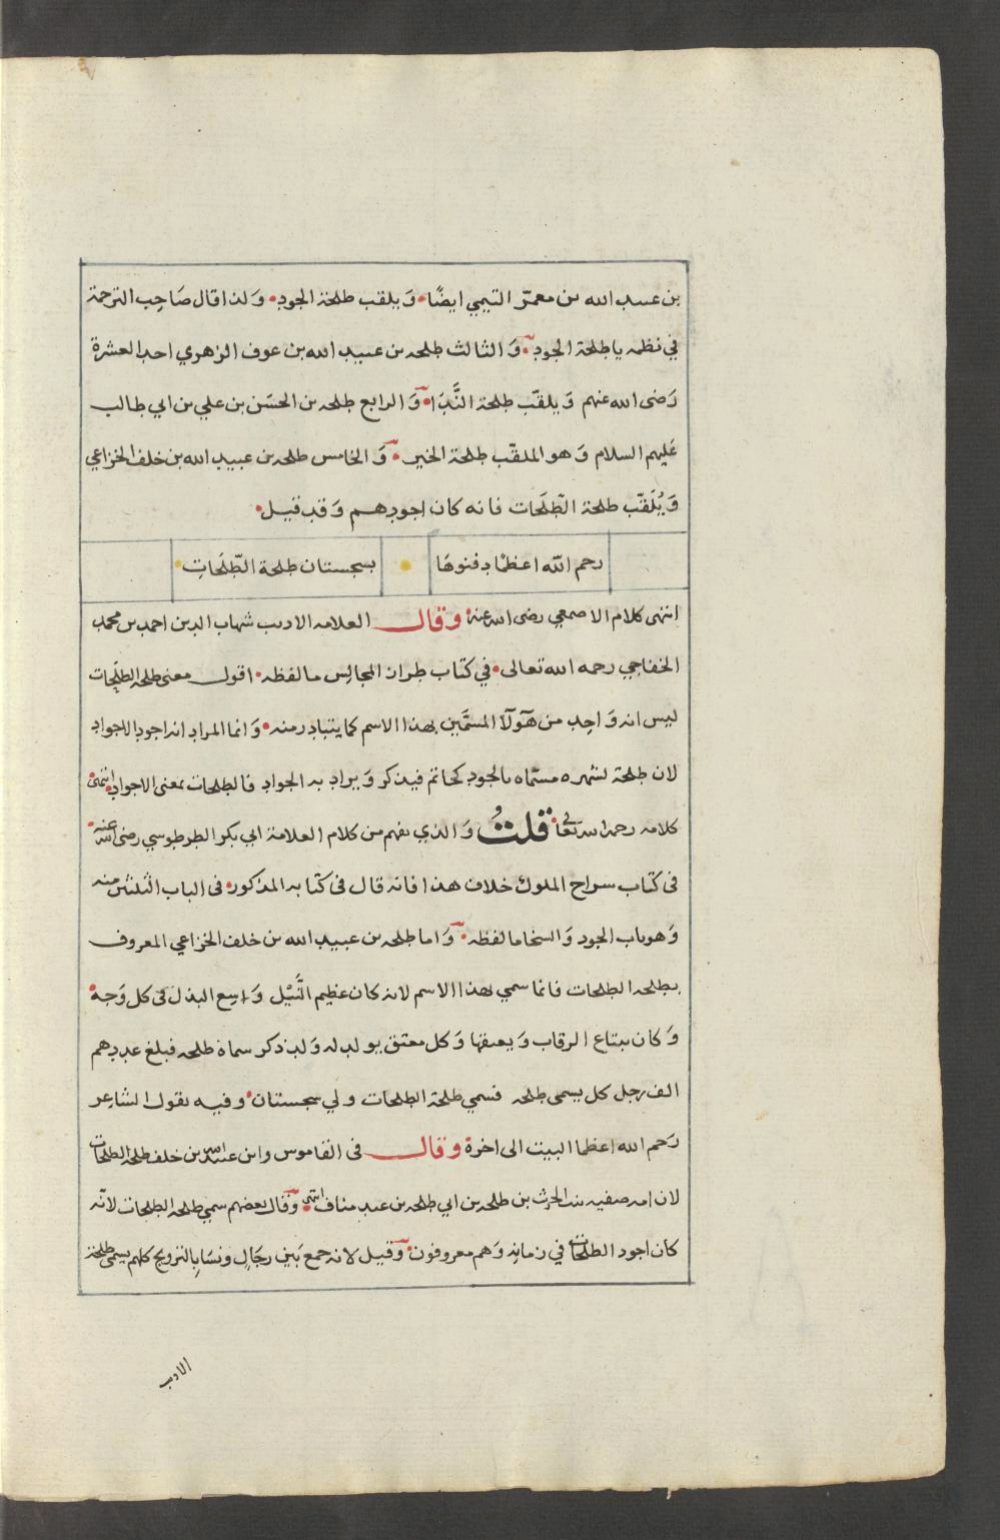 بن عبيد الله بن معمر التيمي ايضًا وَيلقب طلحة الجود وَلذا قال صَاحِب الترجمة
في نظمه يا طلحة الجود وَ الثالث طلحه بن عبيد الله بن عوف الزهري احد العشرة
رَضى الله عنهم وَيلقّب طلحة النَّدَا وَ الرابع طلحه بن الحسَن بن علي بن ابي طالب
عَليهم السلام وَهو الملقّب طلحة الخير وَ الخامس طلحه بن عبيد الله بن خلف الخزاعي
وَيُلَقّب طلحة الطّلَحات فانه كان اجودهم وَقد قيل
رحم اللّه اعظمًا دفنوهَا بسجستان طلحة الطّلَحَاتِ
انتهى كلام الاصمعي رضى الله عنه وقال العلامه الاديب شهاب الدين احمد بن محمد
الخفاجي رحمه الله تعالى في كتاب طراز المجالِس ما لفظه اقول معنى طلحة الطلَحات
ليس انه وَاحِد من هَؤلآ المسمَّين بهذا الاسم كما يتبادِر منه وَ انما المراد انه اجود الاجواد
لان طلحة لشهره مسمّاه بالجود كحَاتم فيذكر وَيراد به الجواد فالطلحات بمعنى الاجواد انتهى
كلامه رحمه الله تعالى قلتُ وَ الذي يفهم من كلام العلامة ابي بكر الطرطوسي رضى الله عنه
فى كتاب سراج الملوك خلاف هذا فانه قال فى كتابه المذكور فى الباب الثلثين منه
وَهو باب الجود وَ السخا ما لفظه وَ اما طلحه بن عبيد الله بن خلف الخزاعي المعروف
بطلحه الطلحات فانما سمي بهذا الاسم لانه كان عظيم النَّيْل وَاسِع البذل فى كل وَجه
وَكان يبتاع الرقاب وَيعتقها وَكل معتق يولد له وَلد ذكر سماه طلحه فبلغ عددهم
الف رجل كل يسمى طلحه فسمي طلحة الطلحات ولي سجستان وفيه يقول الشاعر
رَحم الله اعظما البيت الى اخرة وقال فى القاموس وابن عبيد الله بن خلف طلحة الطلحات
لان امه صفيه بنت الحرث بن طلحه بن ابي طلحه بن عبد مناف انتهى وَقال بعضهم سمي طلحه الطلحات لانّه
كان اجود الطلحات في زمانِهِ وَهم معروفون وَقيل لانه جمع بَين رجَالٍ ونسَا بالتزويج كلهم يسمى طلحة
الادب